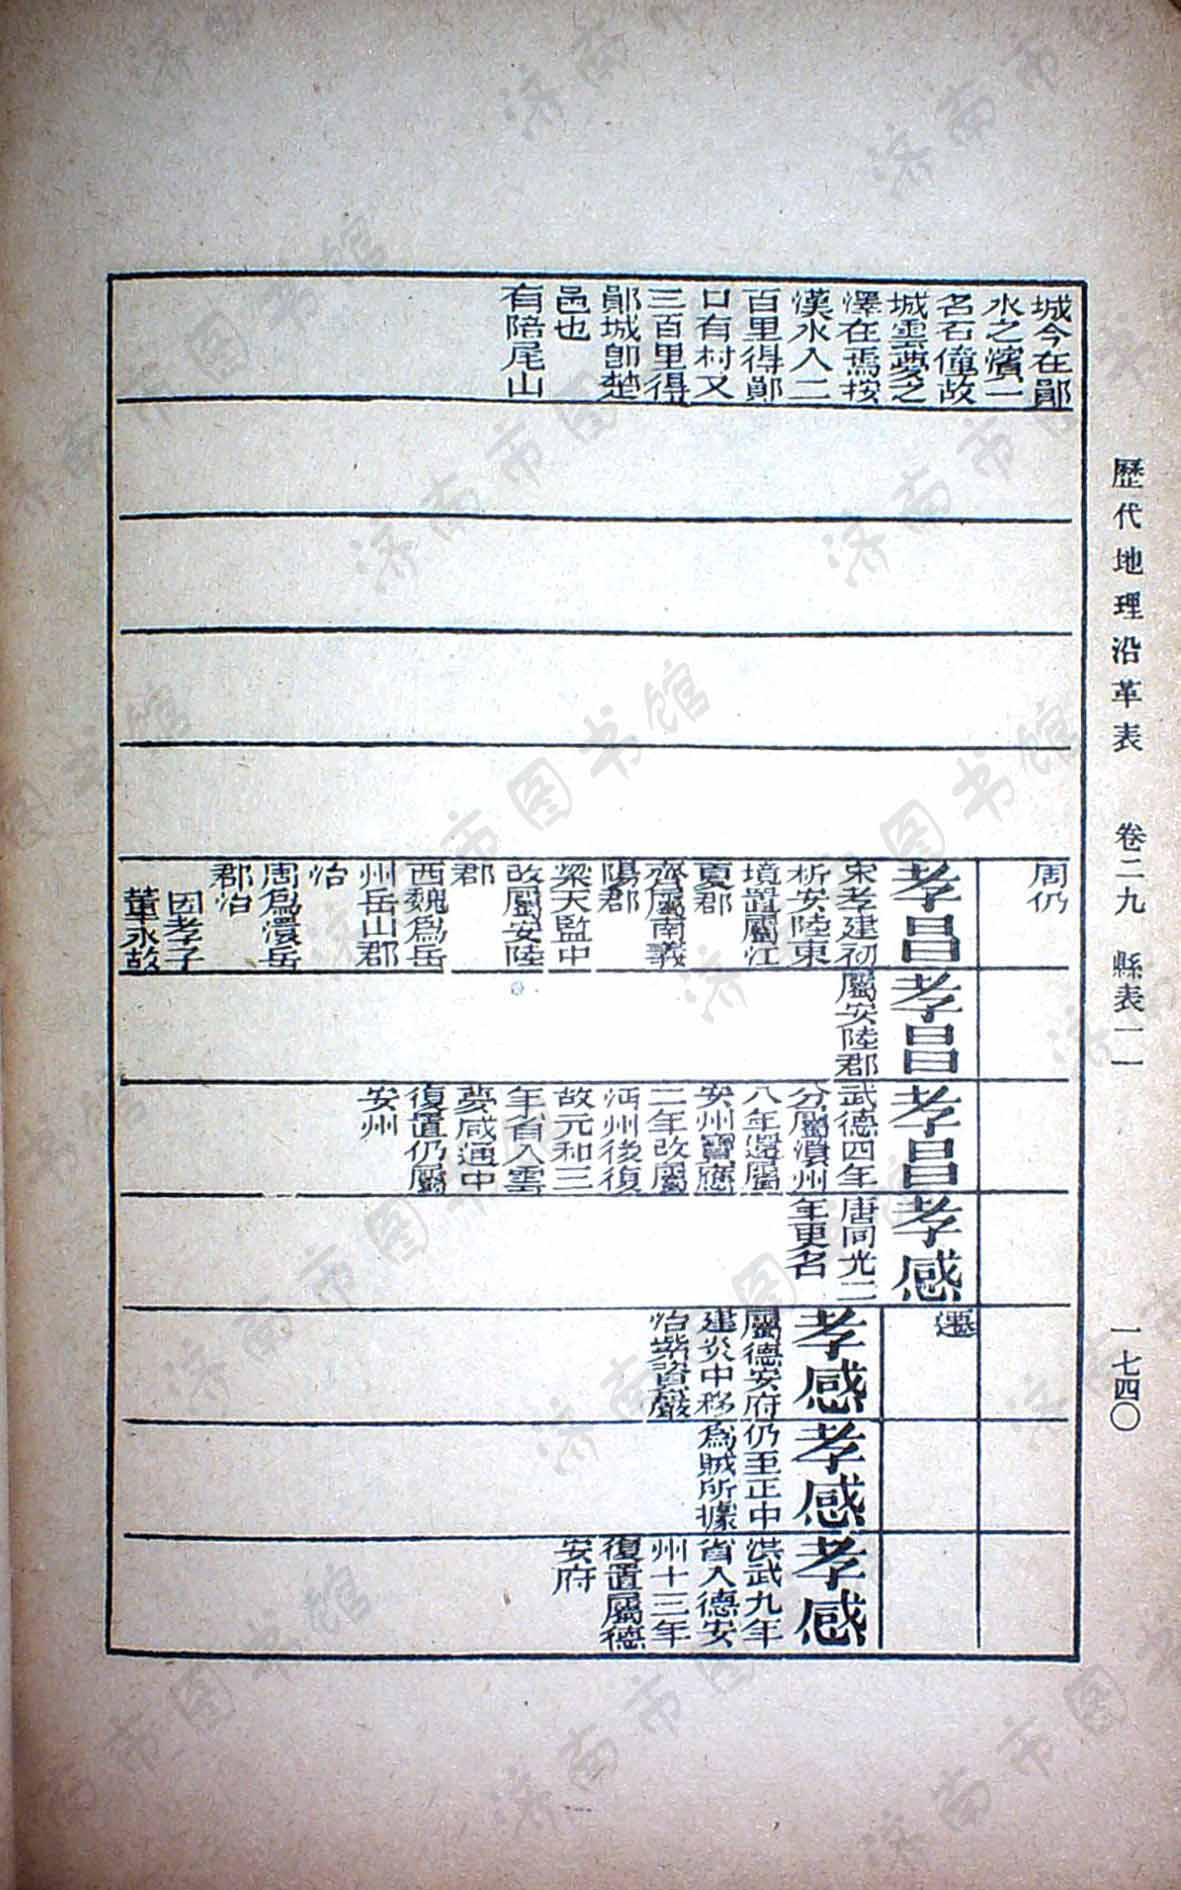 歷代地理沿革表　卷二九　縣表一一　一七四〇
城今在鄖
水之濱一
名石僮故
城雲夢之
澤在焉按
漢水入二
百里得鄖
口有村又
三百里得
鄖城即楚
邑也
有陪尾山
周仍
孝昌
宋孝建初
析安陸東
境置屬江
夏郡
齊屬南義
陽郡
梁天監中
故屬安陸
郡
西魏為岳
州岳山郡
治
周為澴岳
郡治
因孝子
董永故
孝昌
屬安陸郡
孝昌
武德四年
分屬澴州
八年還屬
安州寶應
二年改屬
沔州後復
故元和三
年省入雲
夢咸通中
復置仍屬
安州
孝感
唐同光二
年更名
遷
孝感
屬德安府
建炎中移
治紫資巖
孝感
仍至正中
為賊所據
孝感
洪武九年
省入德安
州十三年
復置屬德
安府
济南市图书馆